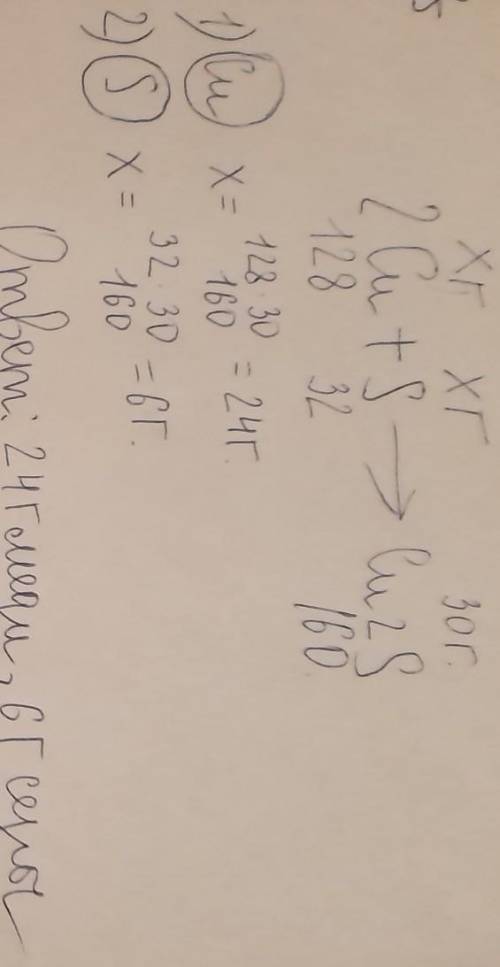 5
хг хг 30г.
2Cu + S → Cu2S
128 32 160
1) Cu x = 128·30 / 160 = 24г.
2) S x = 32·30 / 160 = 6г.
Ответ: 24г меди, 6г серы